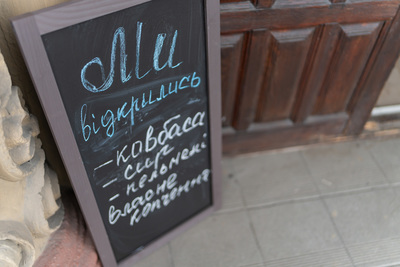 Ми
відкрились
- ковбаса
- сир
- пельмені
власне
копчення